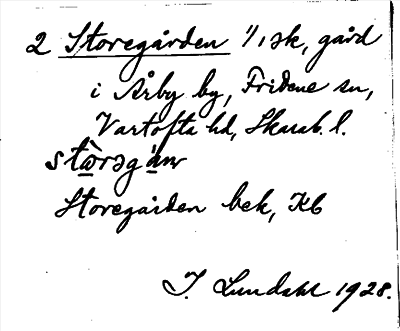 2 Storegården 1/1 sk, gård
i Årby by, Fridene sn,
Vartofta hd, Skarab. l.
Storegården bek, Kb
I. Lundahl 1928.